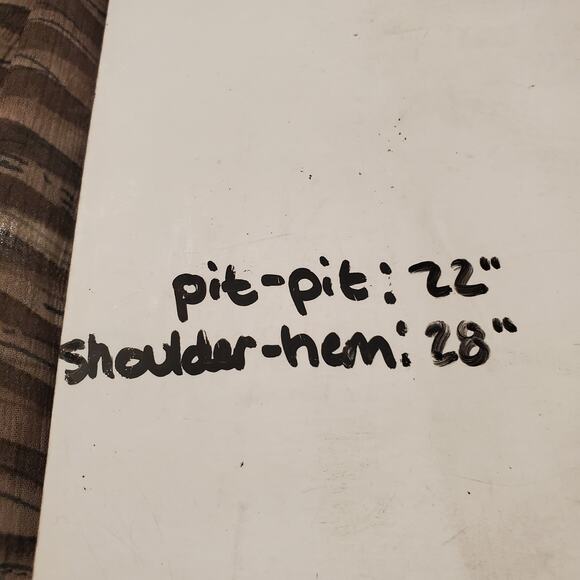 pit-pit: 22"
shoulder-hem: 28"